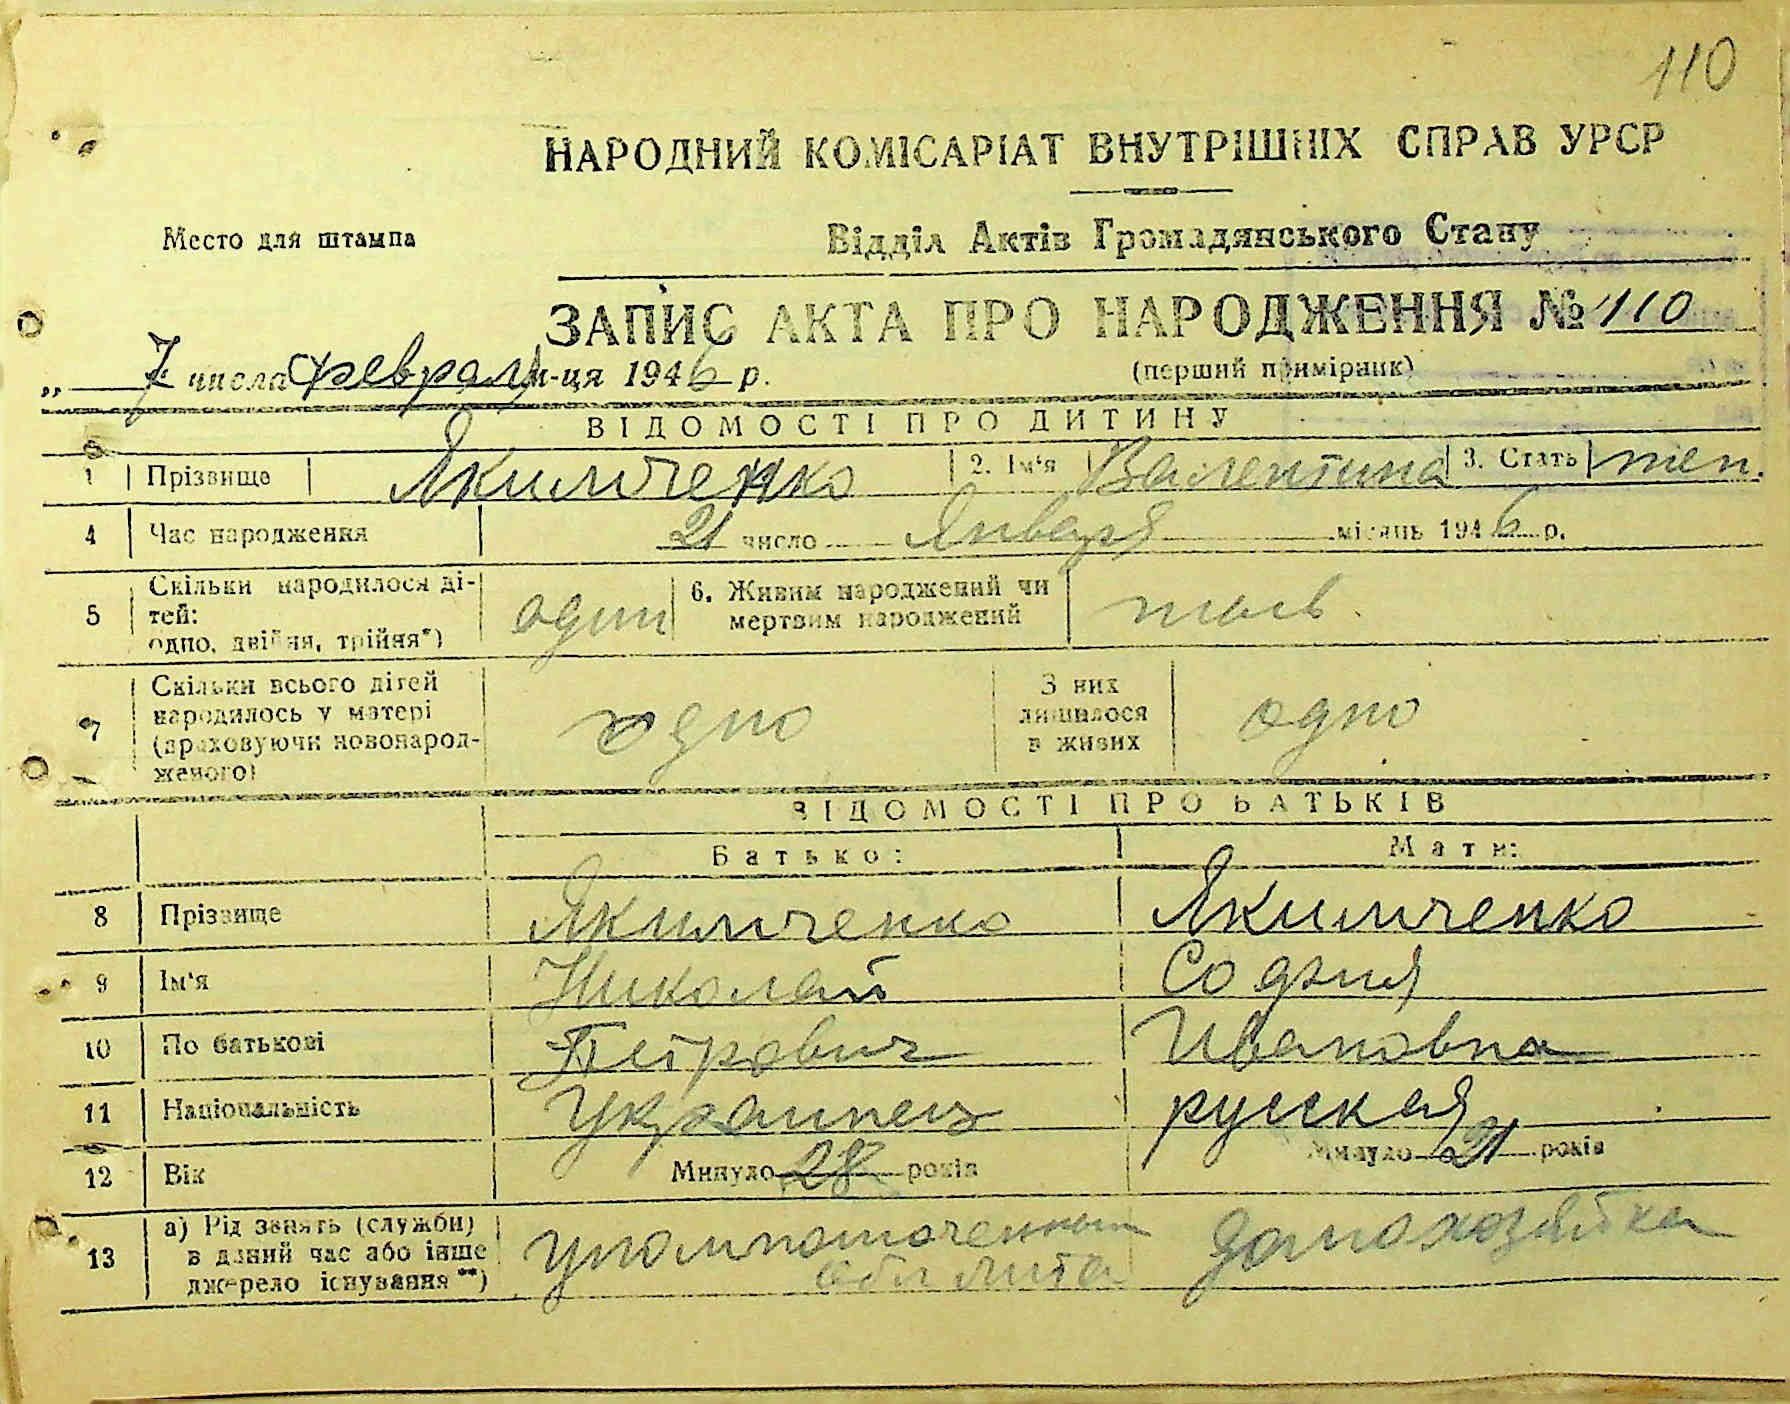 110
НАРОДНИЙ КОМІСАРІАТ ВНУТРІШНІХ СПРАВ УРСР
Место для штампа
Відділ Актів Громадянського Стану
ЗАПИС АКТА ПРО НАРОДЖЕННЯ № 110
„ 7 числа февраля м-ця 1946 р.
(перший примірник)
ВІДОМОСТІ ПРО ДИТИНУ
1 Прізвище Якимченко 2. Ім'я Валентина 3. Стать жен.
4 Час народження 21 число Января місяць 1946 р.
5 Скільки народилося ді-
тей:
одно, двійня, трійня*)
один
6. Живим народжений чи
мертвим народжений
7 Скільки всього дітей
народилось у матері
(враховуючи новонарод-
женого)
одно
З них
лишилося
в живих
одно
ВІДОМОСТІ ПРО БАТЬКІВ
Батько: Мати:
8 Прізвище Якимченко Якимченко
9 Ім'я Николай София
10 По батькові Петрович Ивановна
11 Національність Украинец русская
12 Вік Минуло 28 років Минуло 21 років
13 а) Рід занять (служби)
в даний час або інше
джерело існування**)
уполномоченный
домохозяйка